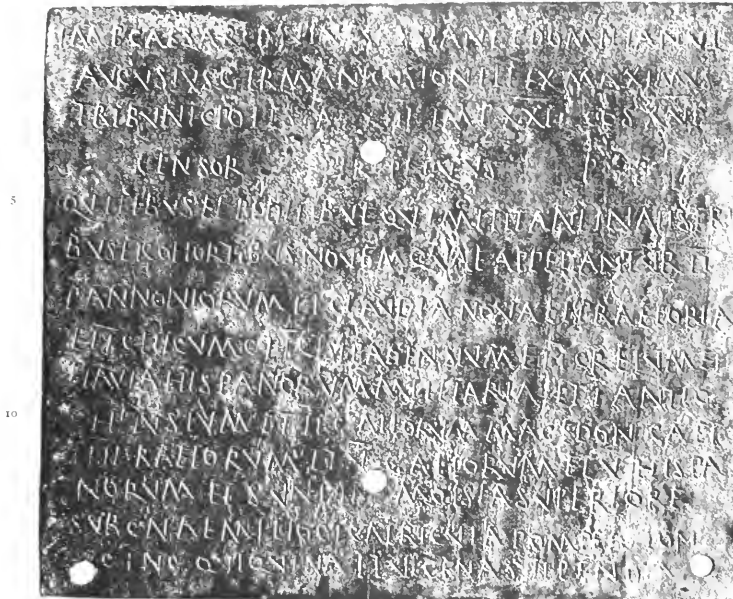 IMP CAESAR DIVI VESPASIANI F DOMITIANVS
AVGVSTVS GERMANICVS PONTIFEX MAXIMVS
TRIBVNIC POTEST IMP XXII COS XVI
CENSOR PERPETVVS P P
5
EQVITIBVS ET PEDITIBVS QVI MILITANT IN ALIS TRI
BVS ET COHORTIBVS NOVEM QVAE APPELLANTVR II
PANNONIORVM ET CLAVDIA NOVA ET PRAETORIA
ET I CILICVM ET I CISIPADENSIVM ET I CRETVM ET
I FLAVIA HISPANORVM MILLIARIA ET I ANTIO
10
CHENSIVM ET II GALLORVM MACEDONICA ET
IIII RAETORVM ET V GALLORVM ET V HISPA
NORVM ET SVNT IN MOESIA SVPERIORE
SVB CN AEMILIO CICATRICVLA POMPEIO LON
GINO QVI QVINA ET VICENA STIPENDIA